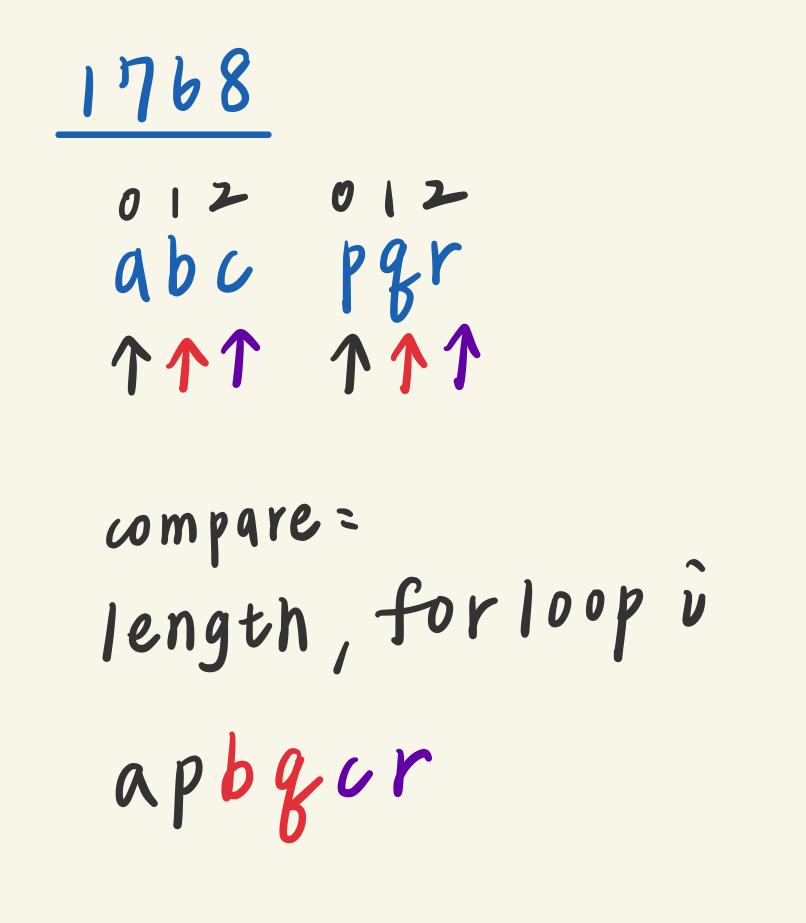 1768
0 1 2 0 1 2
abc pqr
compare =
length, for loop i
apbqcr